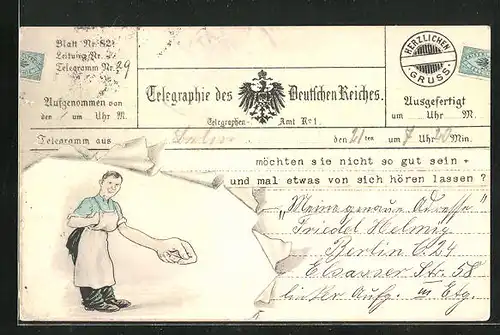 Blatt Nr. 821
Leitung Nr.
Telegramm Nr. 29
HERZLICHEN
GRUSS.
Telegraphie des Deutschen Reiches.
Aufgenommen von
den um Uhr M.
Telegraphen- Amt No 1.
Ausgefertigt
um Uhr M.
Telegramm aus den 21 ten um 7 Uhr 20 Min.
möchten sie nicht so gut sein
und mal etwas von sich hören lassen ?
"Meine genaue Adresse"
Friedel Helmig
Berlin C. 24
Elsasser Str. 58
linker Aufg. III Etg.